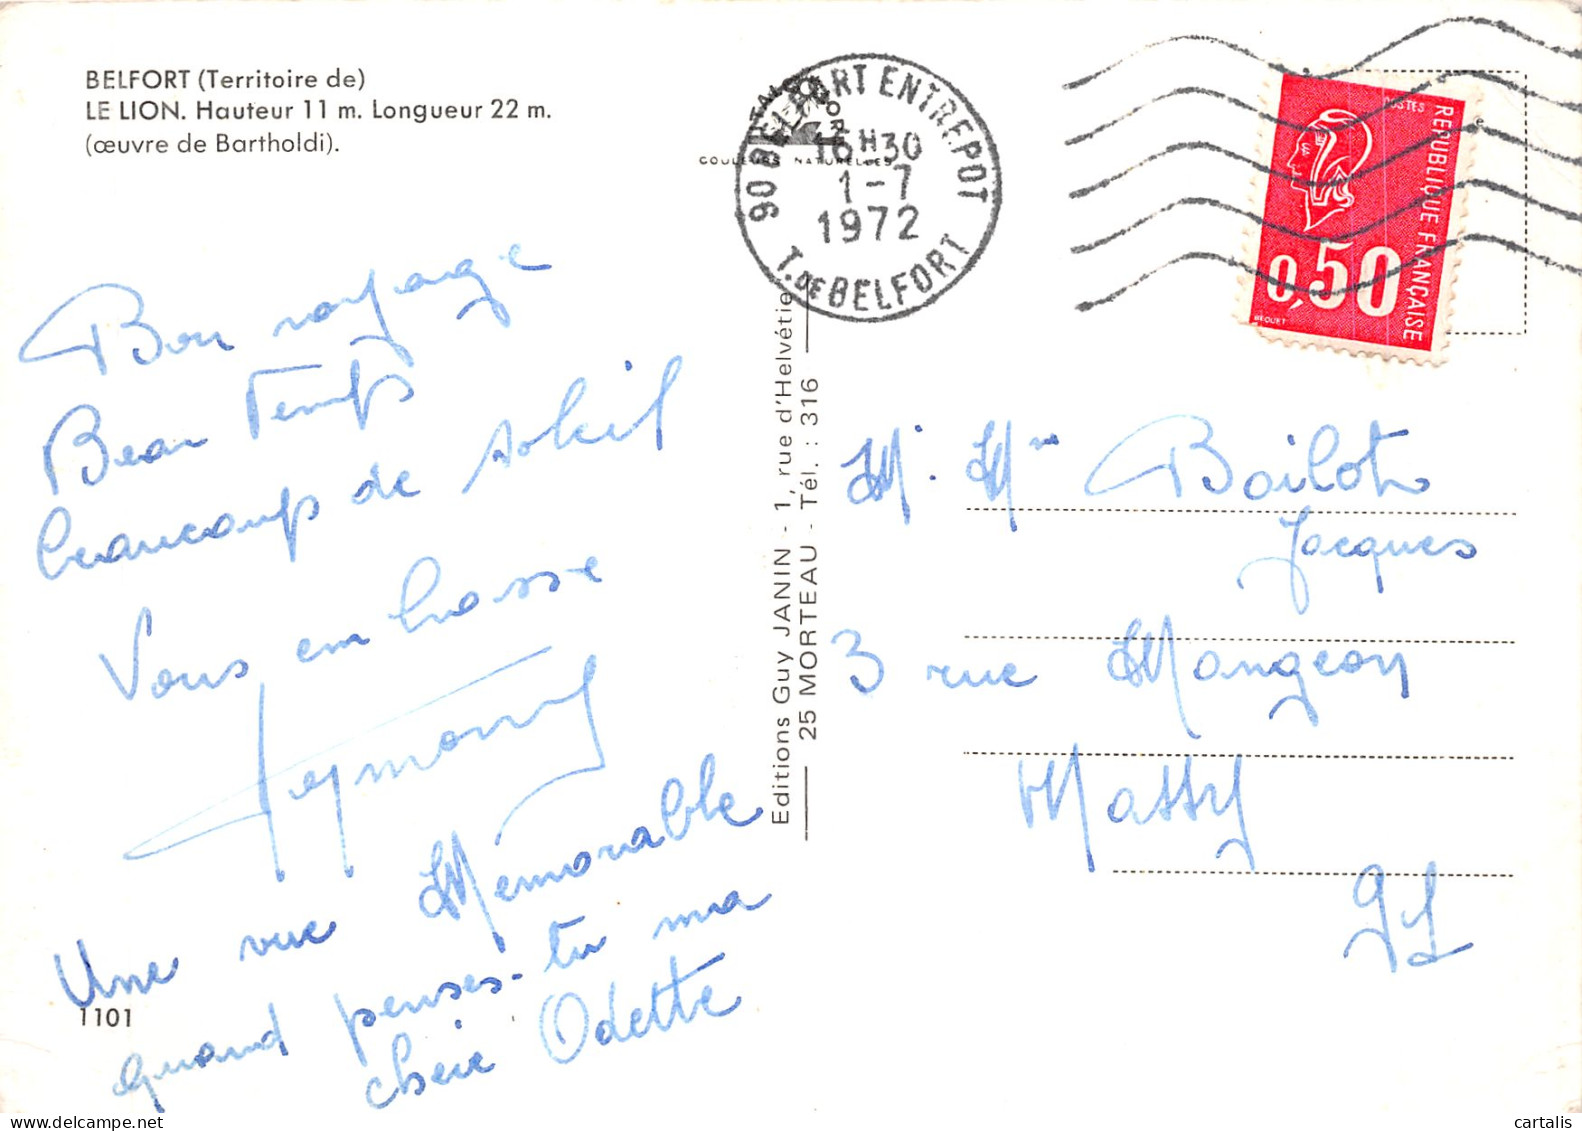 BELFORT (Territoire de)
LE LION. Hauteur 11 m. Longueur 22 m.
(œuvre de Bartholdi).
COULEURS NATURELLES
90 BELFORT ENTREPOT
16H30
1-7
1972
T. DE BELFORT
POSTES
REPUBLIQUE FRANÇAISE
0,50
BEQUET
Bon voyage
Beau Temps
beaucoup de soleil
Vous embrasse
Une vue Memorable
quand penses-tu ma
cheie Odette
1101
Editions Guy JANIN - 1, rue d'Helvétie
25 MORTEAU - Tél. : 316
M. Mme Boilot
Jacques
3 rue Mangeon
Massy
91
cartalis